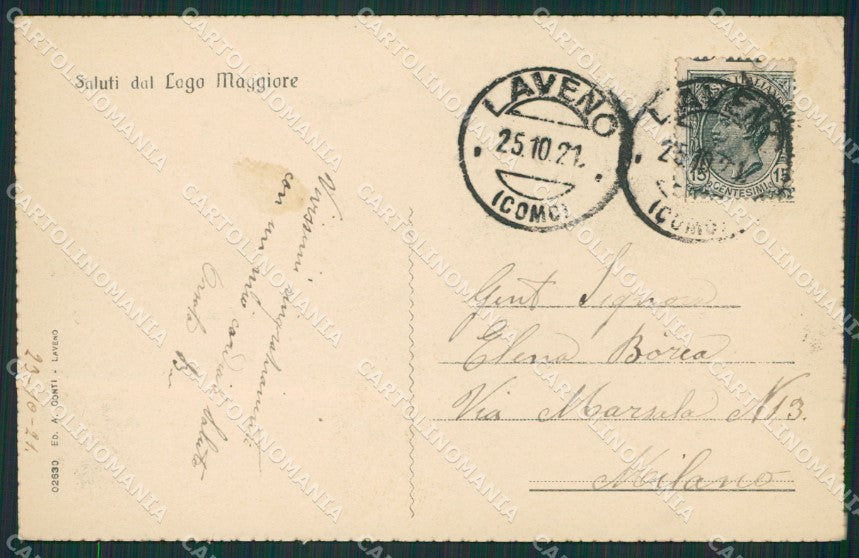 Saluti dal Lago Maggiore
LAVENO
25.10.21.
(COMO)
LAVENO
25.10.21
(COMO)
15 15
CENTESIMI
Vivissimi ringraziamenti
con un mio cordiale saluto
Gent Signora
Elena Borea
Via Marsala N 13.
Milano
02830 ED. A. CONTI - LAVENO
23-10-21.
CARTOLINOMANIA